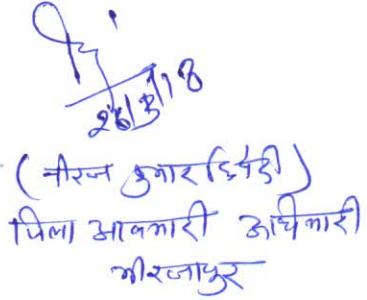 26/3/18
(नीरज कुमार द्विवेदी)
जिला आबकारी अधिकारी
मीरजापुर